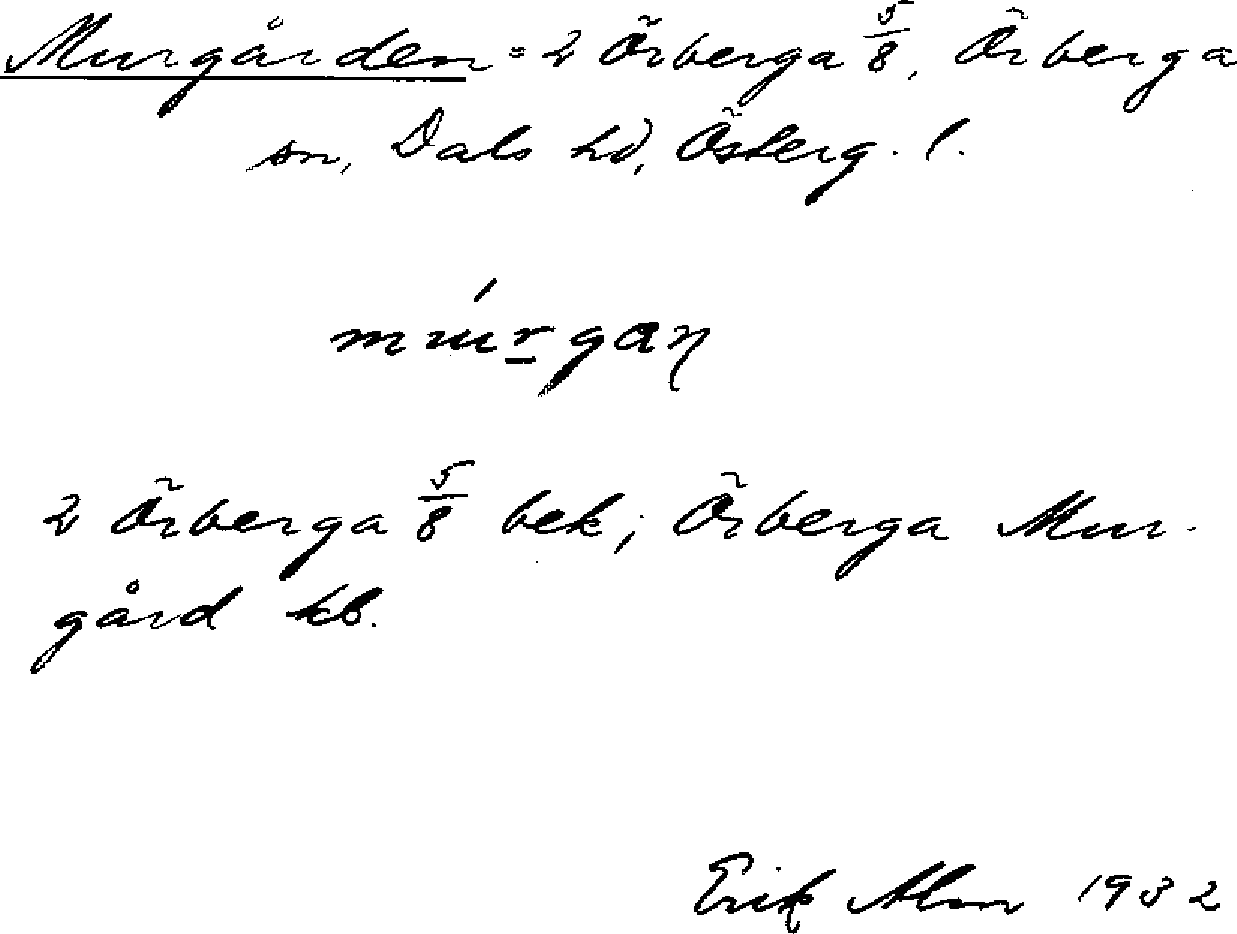 Murgården = 2 Örberga 5/8, Örberga
sn, Dals hd, Österg. l.
2 Örberga 5/8 bek; Örberga Mur-
gård kb.
Erik Alm 1932